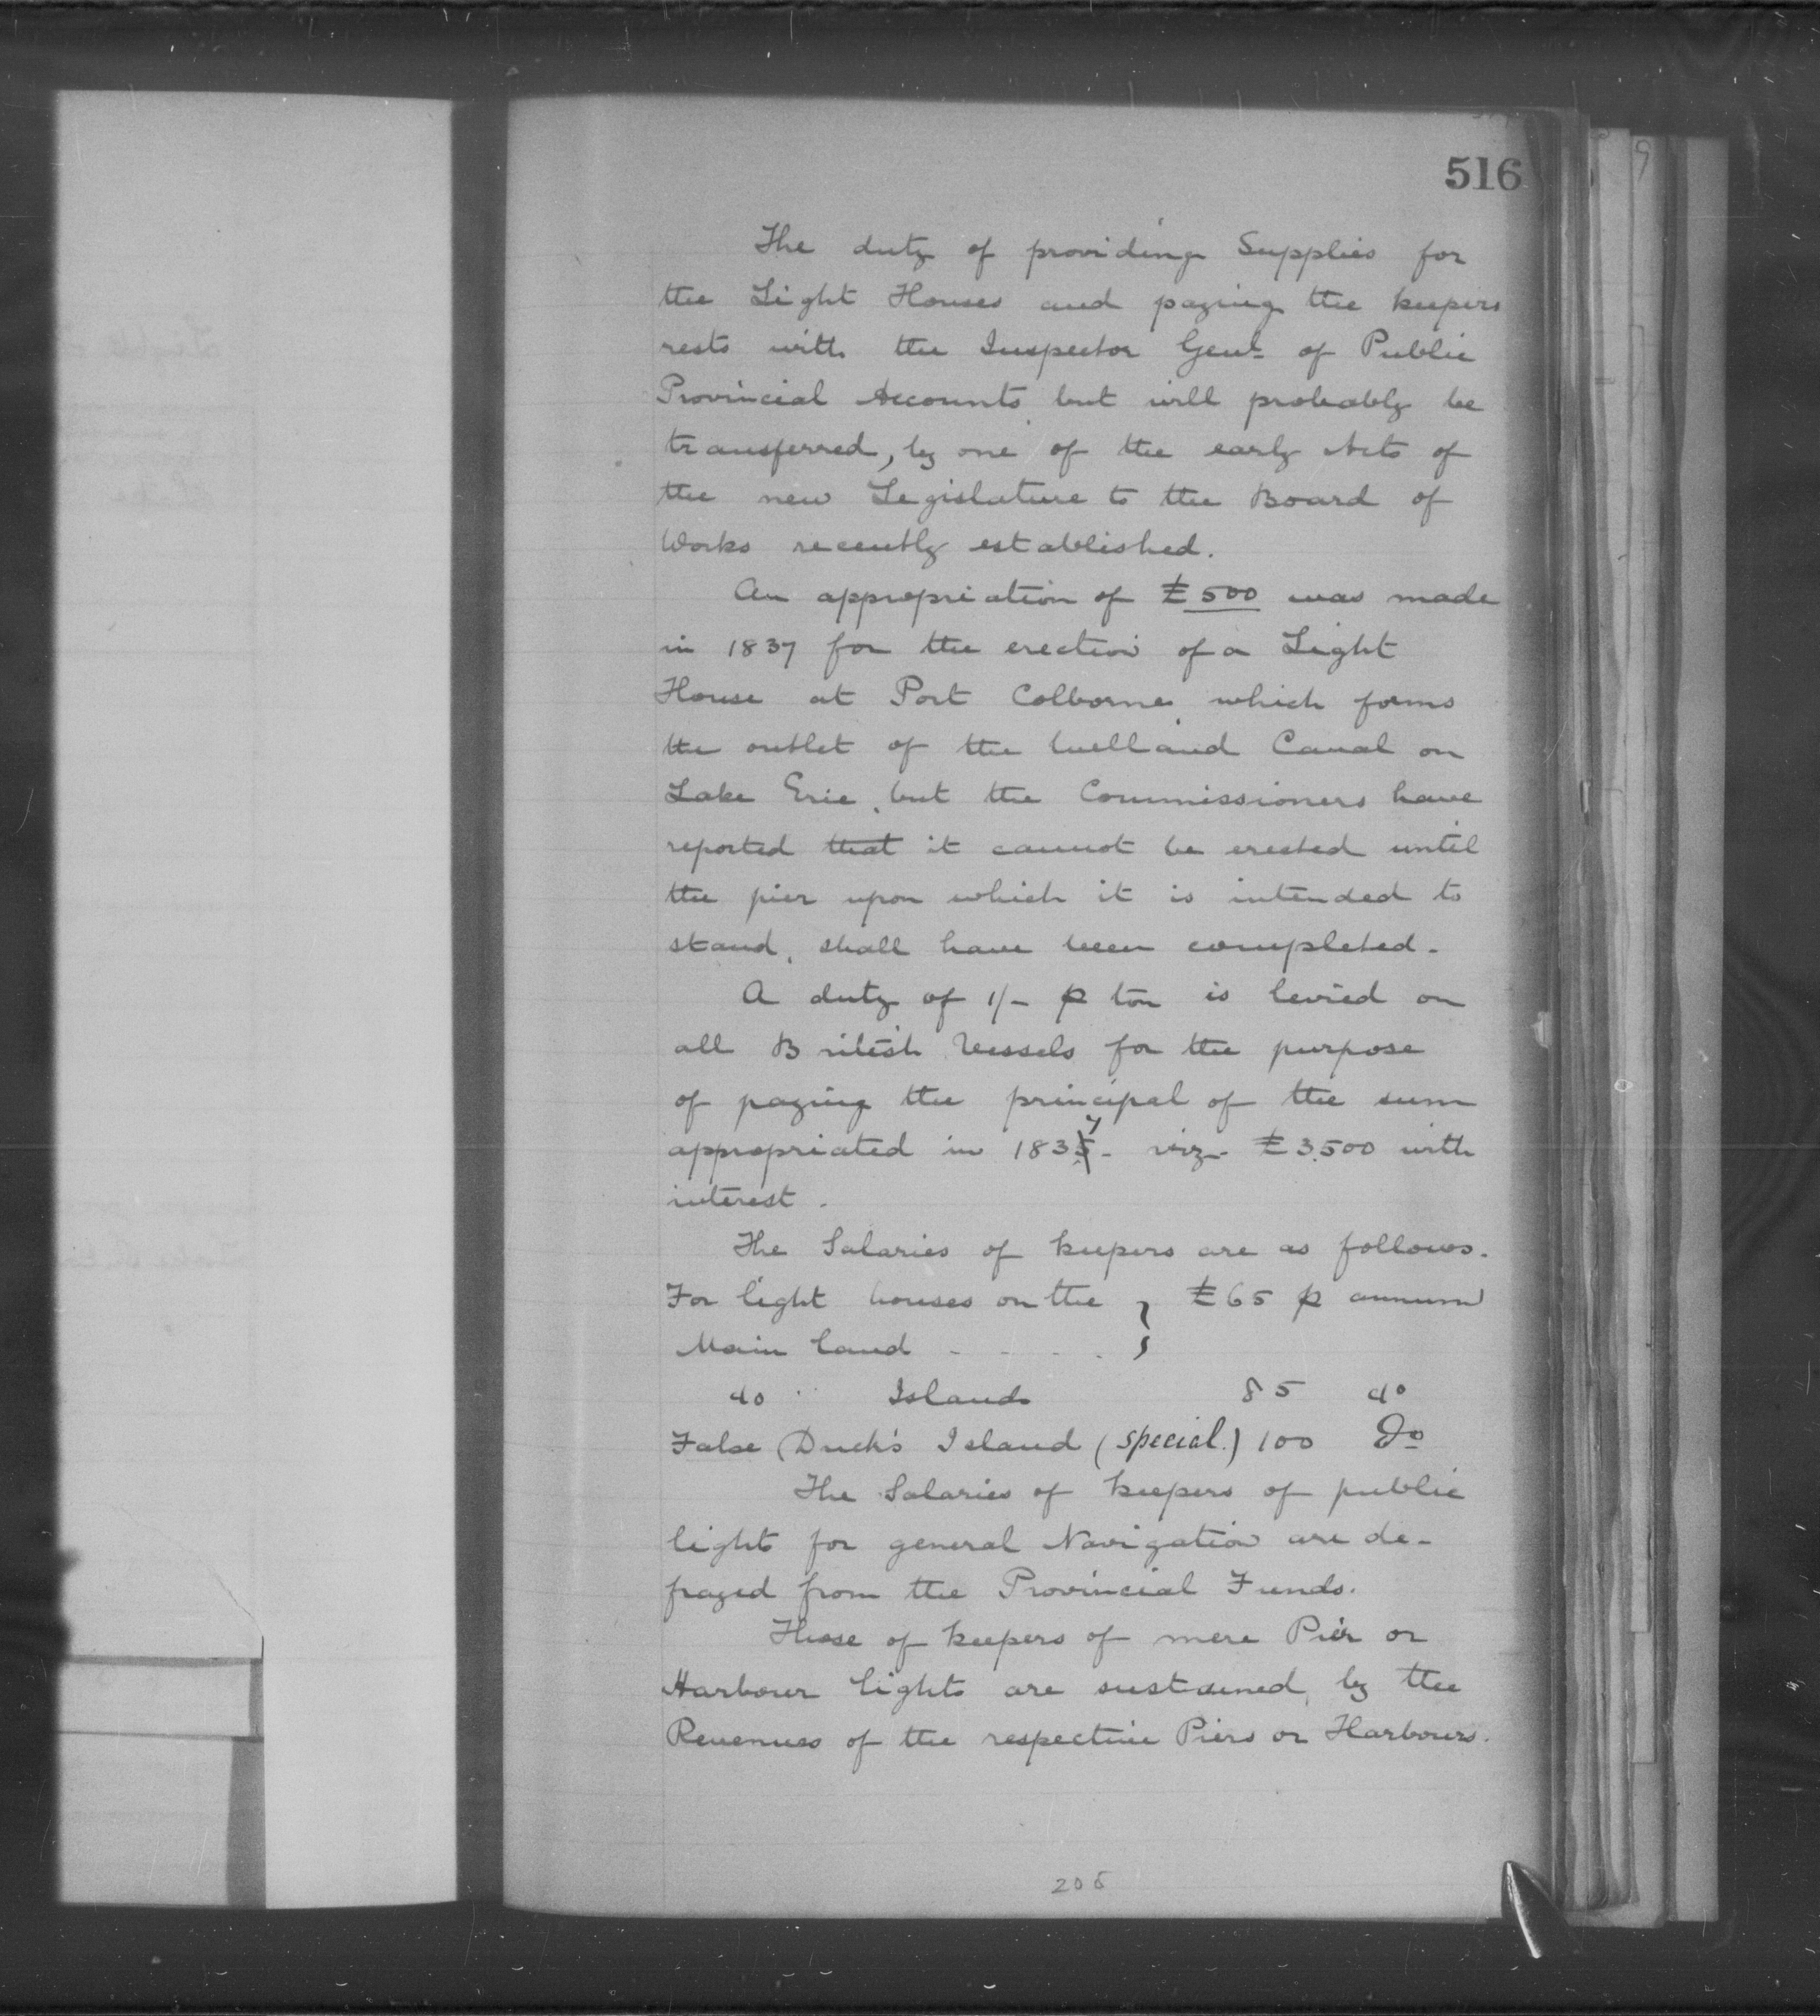 516
The duty of providing Supplies for
the Light Houses and paying the keepers
rests with the Inspector Genl. of Public
Provincial Accounts, but will probably be
transferred, by one of the early Acts of
the new Legislature to the Board of
Works recently established.
An appropriation of £500 was made
in 1837 for the erection of a Light
House at Port Colborne, which forms
the outlet of the Welland Canal on
Lake Erie, but the Commissioners have
reported that it cannot be erected until
the pier upon which it is intended to
stand, shall have been completed.
A duty of 1/- p ton is levied on
all British Vessels for the purpose
of paying the principal of the sum
appropriated in 1837 - viz - £3,500 with
interest.
The Salaries of keepers are as follows.
For light houses on the } £65 p annum
Main land - - - . }
do " Islands 85 do
False Duck's Island (special.) 100 Do
The Salaries of keepers of public
lights for general Navigation are de-
frayed from the Provincial Funds.
Those of keepers of mere Pier or
Harbour lights are sustained, by the
Revenues of the respective Piers or Harbours.
205